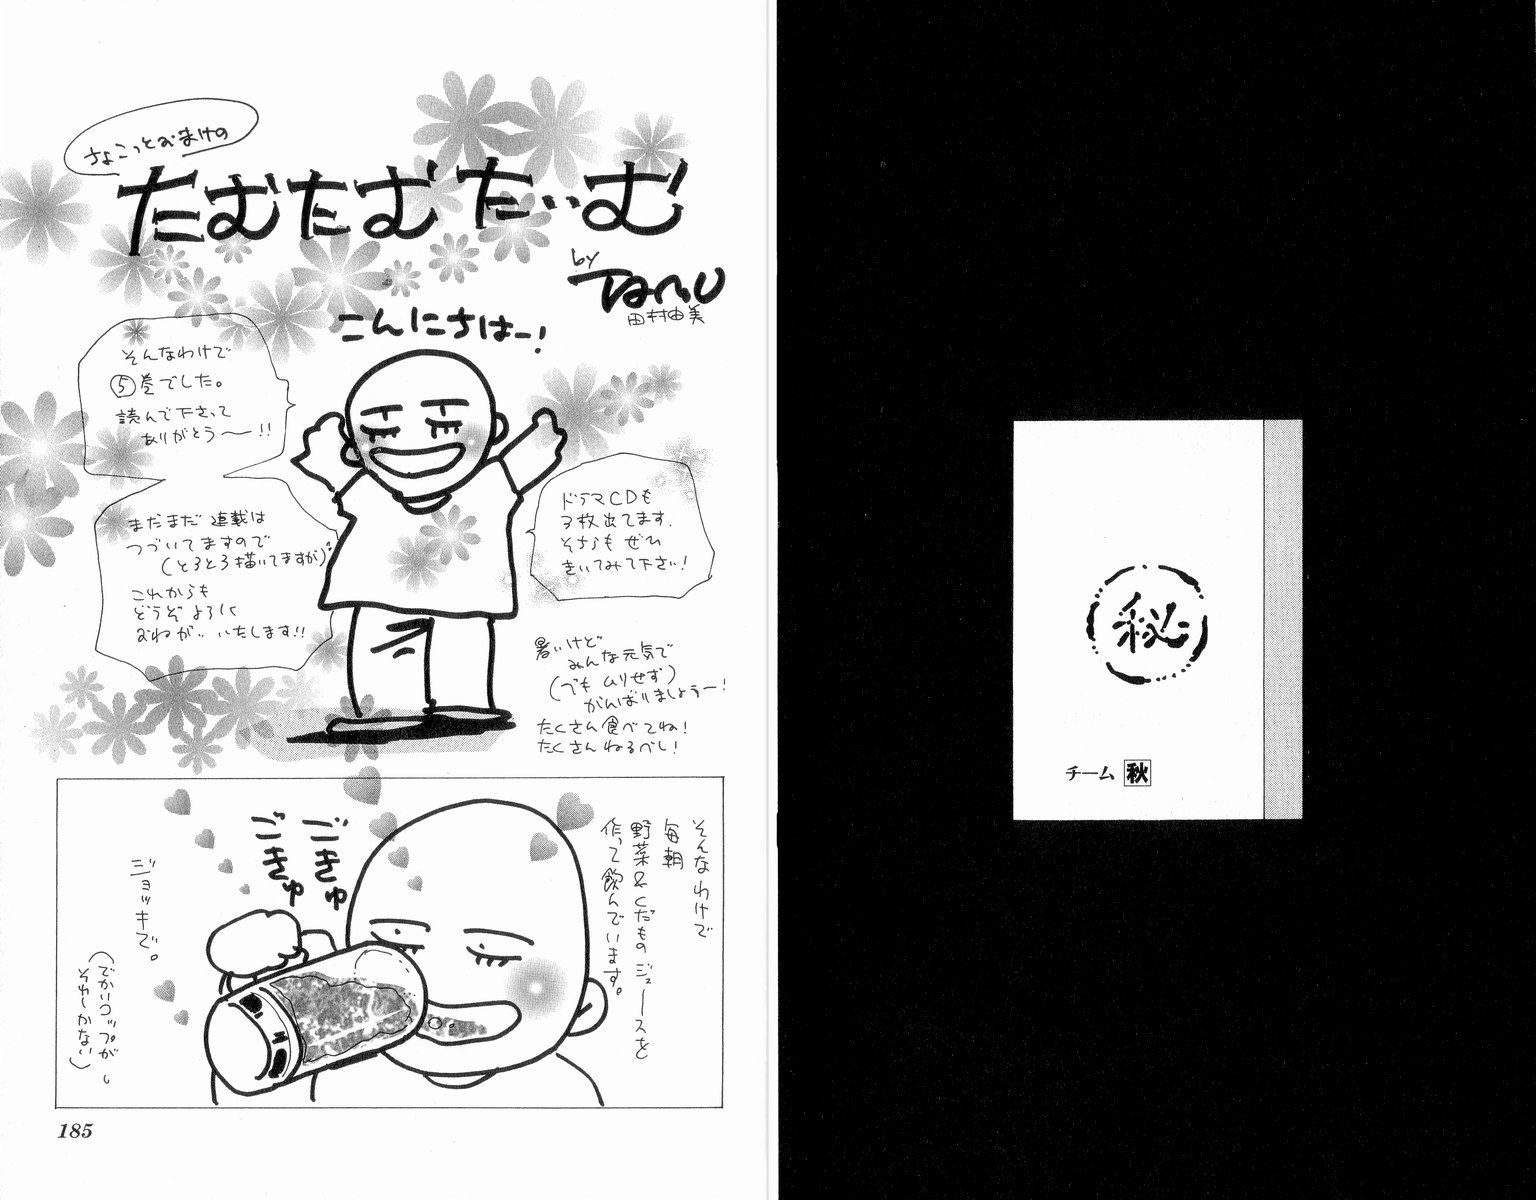 秘
チーム 秋
ちょこっとおまけの
たむたむたいむ!
by
TAMU
田村由美
こんにちはー!
そんなわけで
⑤巻でした。
読んで下さって
ありがとう〜!!
まだまだ連載は
つづいてますので
(とろとろ描いてますが)
これからも
どうぞよろしく
おねがいいたします!!
ドラマCDも
3枚出てます。
そちらもぜひ
きいてみて下さい!
暑いけど
みんな元気で
(でもムリせず)
がんばりましょうー!
たくさん食べてね!
たくさんねるべし!
そんなわけで
毎朝
野菜&くだものジュースを
作って飲んでいます。
ごきゅ
ごきゅ
ジョッキで。
(でかいコップが
それしかない)
185